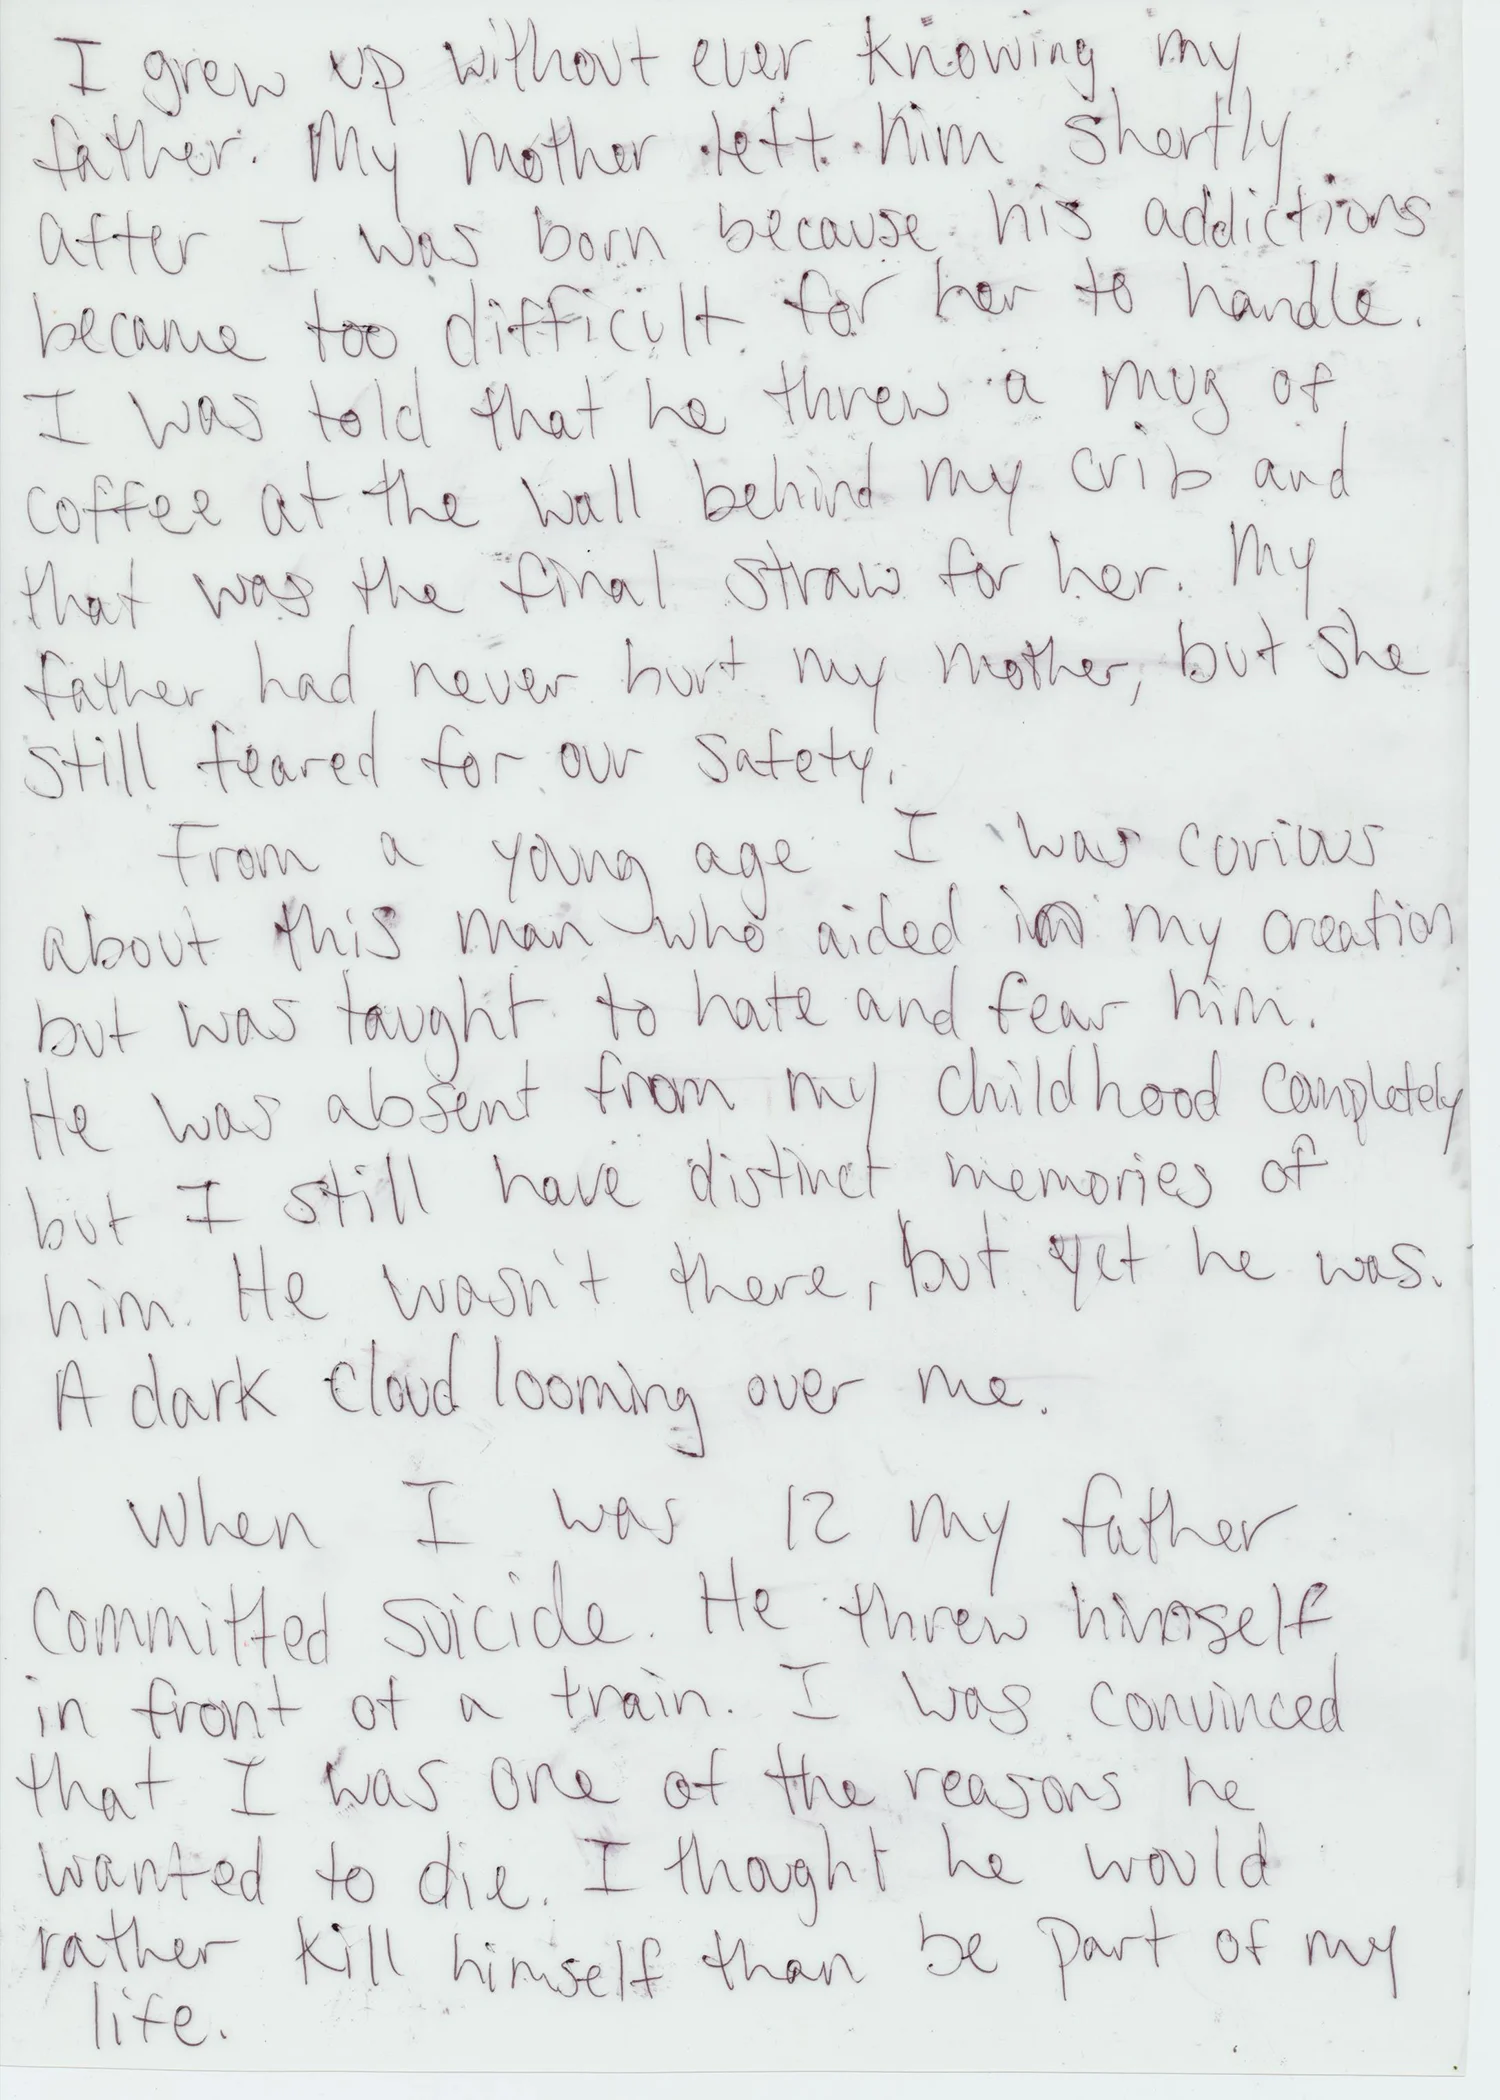 I grew up without ever knowing my
father. My mother left him shortly
after I was born because his addictions
became too difficult for her to handle.
I was told that he threw a mug of
coffee at the wall behind my crib and
that was the final straw for her. My
father had never hurt my mother, but she
still feared for our safety.
From a young age I was curious
about this man who aided in my creation
but was taught to hate and fear him.
He was absent from my childhood completely
but I still have distinct memories of
him. He wasn't there, but yet he was.
A dark cloud looming over me.
When I was 12 my father
committed suicide. He threw himself
in front of a train. I was convinced
that I was one of the reasons he
wanted to die. I thoght he would
rather kill himself than be part of my
life.